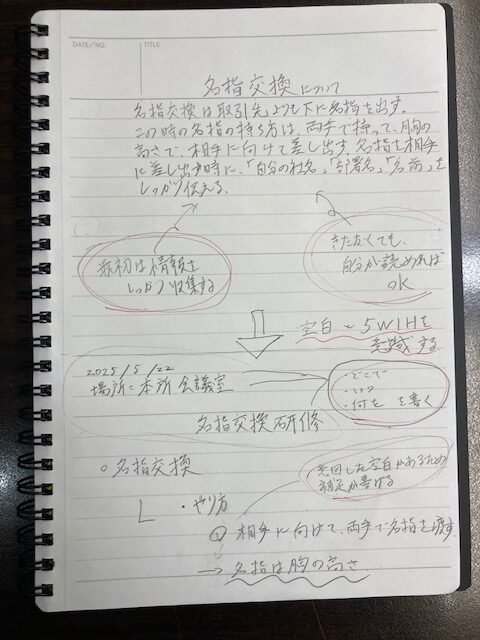 DATE/NO.
TITLE
名指交換について
名指交換は取引先よりも下に名指を出す。
この時の名指の持ち方は、両手で持って、胸の
高さで、相手に向けて差し出す。名指を相手
に差し出す時に、「自分の社名」「部署名」「名前」を
しっかり伝える。
最初は情報を
しっかり収集する
きたなくても、
自分が読めれば
OK
空白〜5W1Hを
意識する
2025/5/22
場所:本所 会議室
・どこで
・いつ
・何を を書く
名指交換研修
○名指交換
意図した空白があるため
補足が書ける
L ・やり方
① 相手に向けて、両手で名指を渡す。
→ 名指は胸の高さ